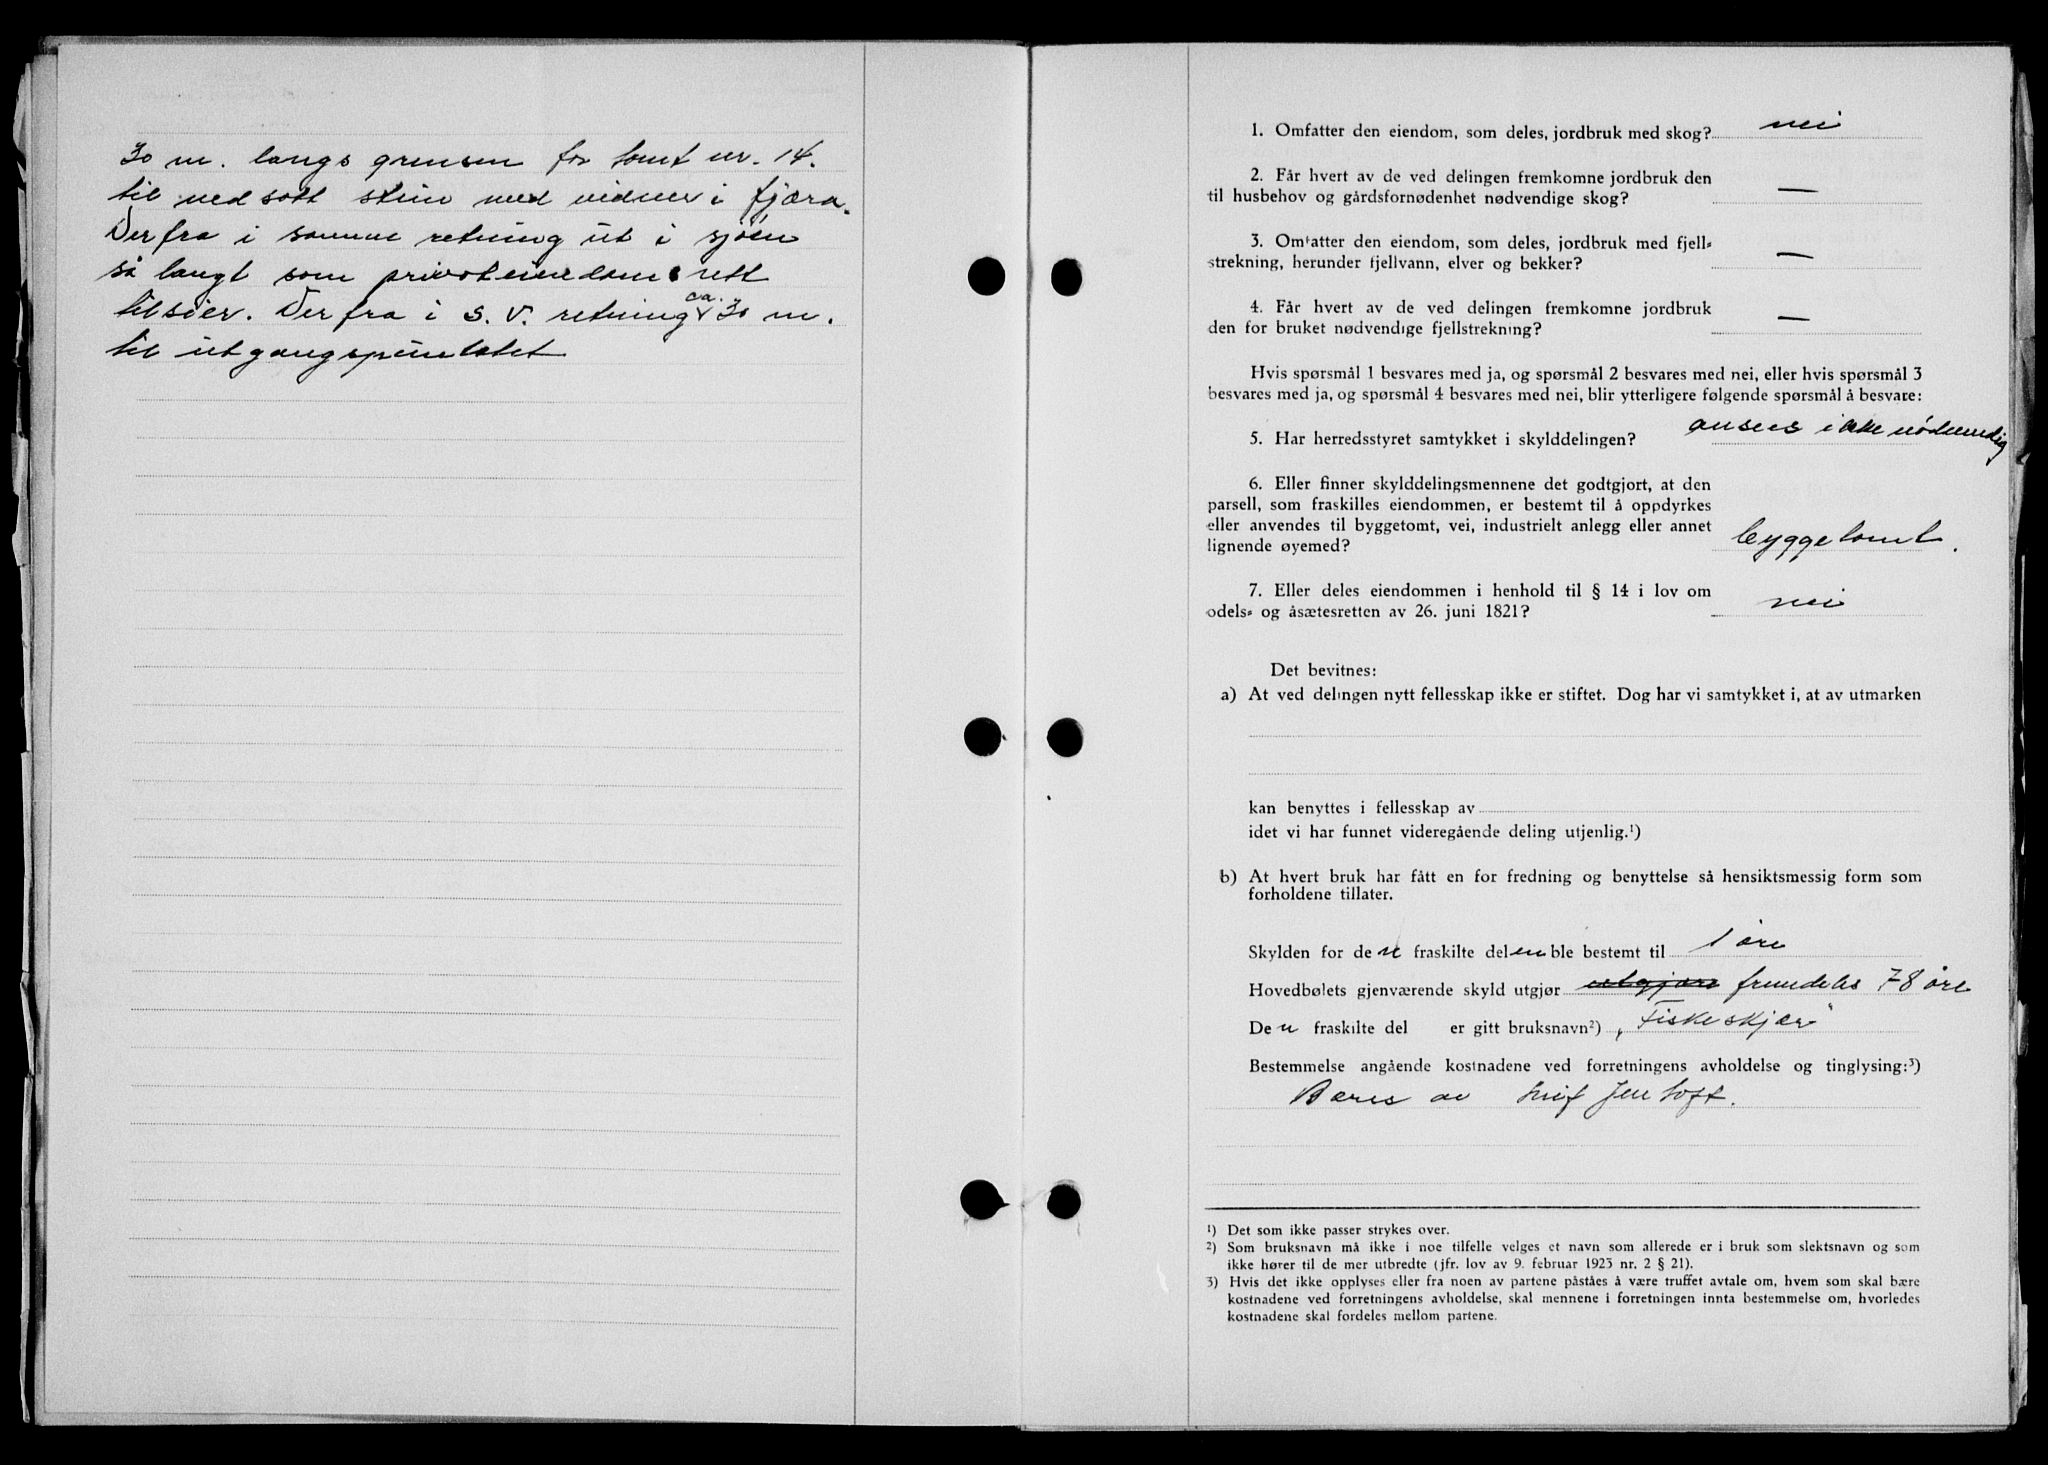 30 m. langs grensen for tomt nr. 14.
til nedsatt stein med vidner i fjæra.
Derfra i samme retning ut i sjøen
så langt som privateiendomsrett
tilsier. Derfra i S.V. retning ca. 30 m.
til utgangspunktet
1. Omfatter den eiendom, som deles, jordbruk med skog? nei
2. Får hvert av de ved delingen fremkomne jordbruk den
til husbehov og gårdsfornødenhet nødvendige skog? —
3. Omfatter den eiendom, som deles, jordbruk med fjell-
strekning, herunder fjellvann, elver og bekker? —
4. Får hvert av de ved delingen fremkomne jordbruk
den for bruket nødvendige fjellstrekning? —
Hvis spørsmål 1 besvares med ja, og spørsmål 2 besvares med nei, eller hvis spørsmål 3
besvares med ja, og spørsmål 4 besvares med nei, blir ytterligere følgende spørsmål å besvare:
5. Har herredsstyret samtykket i skylddelingen? ansees ikke nødvendig
6. Eller finner skylddelingsmennene det godtgjort, at den
parsell, som fraskilles eiendommen, er bestemt til å oppdyrkes
eller anvendes til byggetomt, vei, industrielt anlegg eller annet
lignende øyemed? byggetomt.
7. Eller deles eiendommen i henhold til § 14 i lov om
odels- og åsætesretten av 26. juni 1821? nei
Det bevitnes:
a) At ved delingen nytt fellesskap ikke er stiftet. Dog har vi samtykket i, at av utmarken
kan benyttes i fellesskap av
idet vi har funnet videregående deling utjenlig.¹)
b) At hvert bruk har fått en for fredning og benyttelse så hensiktsmessig form som
forholdene tillater.
Skylden for den fraskilte delen ble bestemt til 1 øre
Hovedbølets gjenværende skyld utgjør utgjøre fremdeles 78 øre
Den fraskilte del er gitt bruksnavn²) „Fiskeskjær"
Bestemmelse angående kostnadene ved forretningens avholdelse og tinglysing:³)
Bæres av Leif Jentoft.
¹) Det som ikke passer strykes over.
²) Som bruksnavn må ikke i noe tilfelle velges et navn som allerede er i bruk som slektsnavn og som
ikke hører til de mer utbredte (jfr. lov av 9. februar 1923 nr. 2 § 21).
3) Hvis det ikke opplyses eller fra noen av partene påståes å være truffet avtale om, hvem som skal bære
kostnadene ved forretningens avholdelse, skal mennene i forretningen innta bestemmelse om, hvorledes
kostnadene skal fordeles mellom partene.